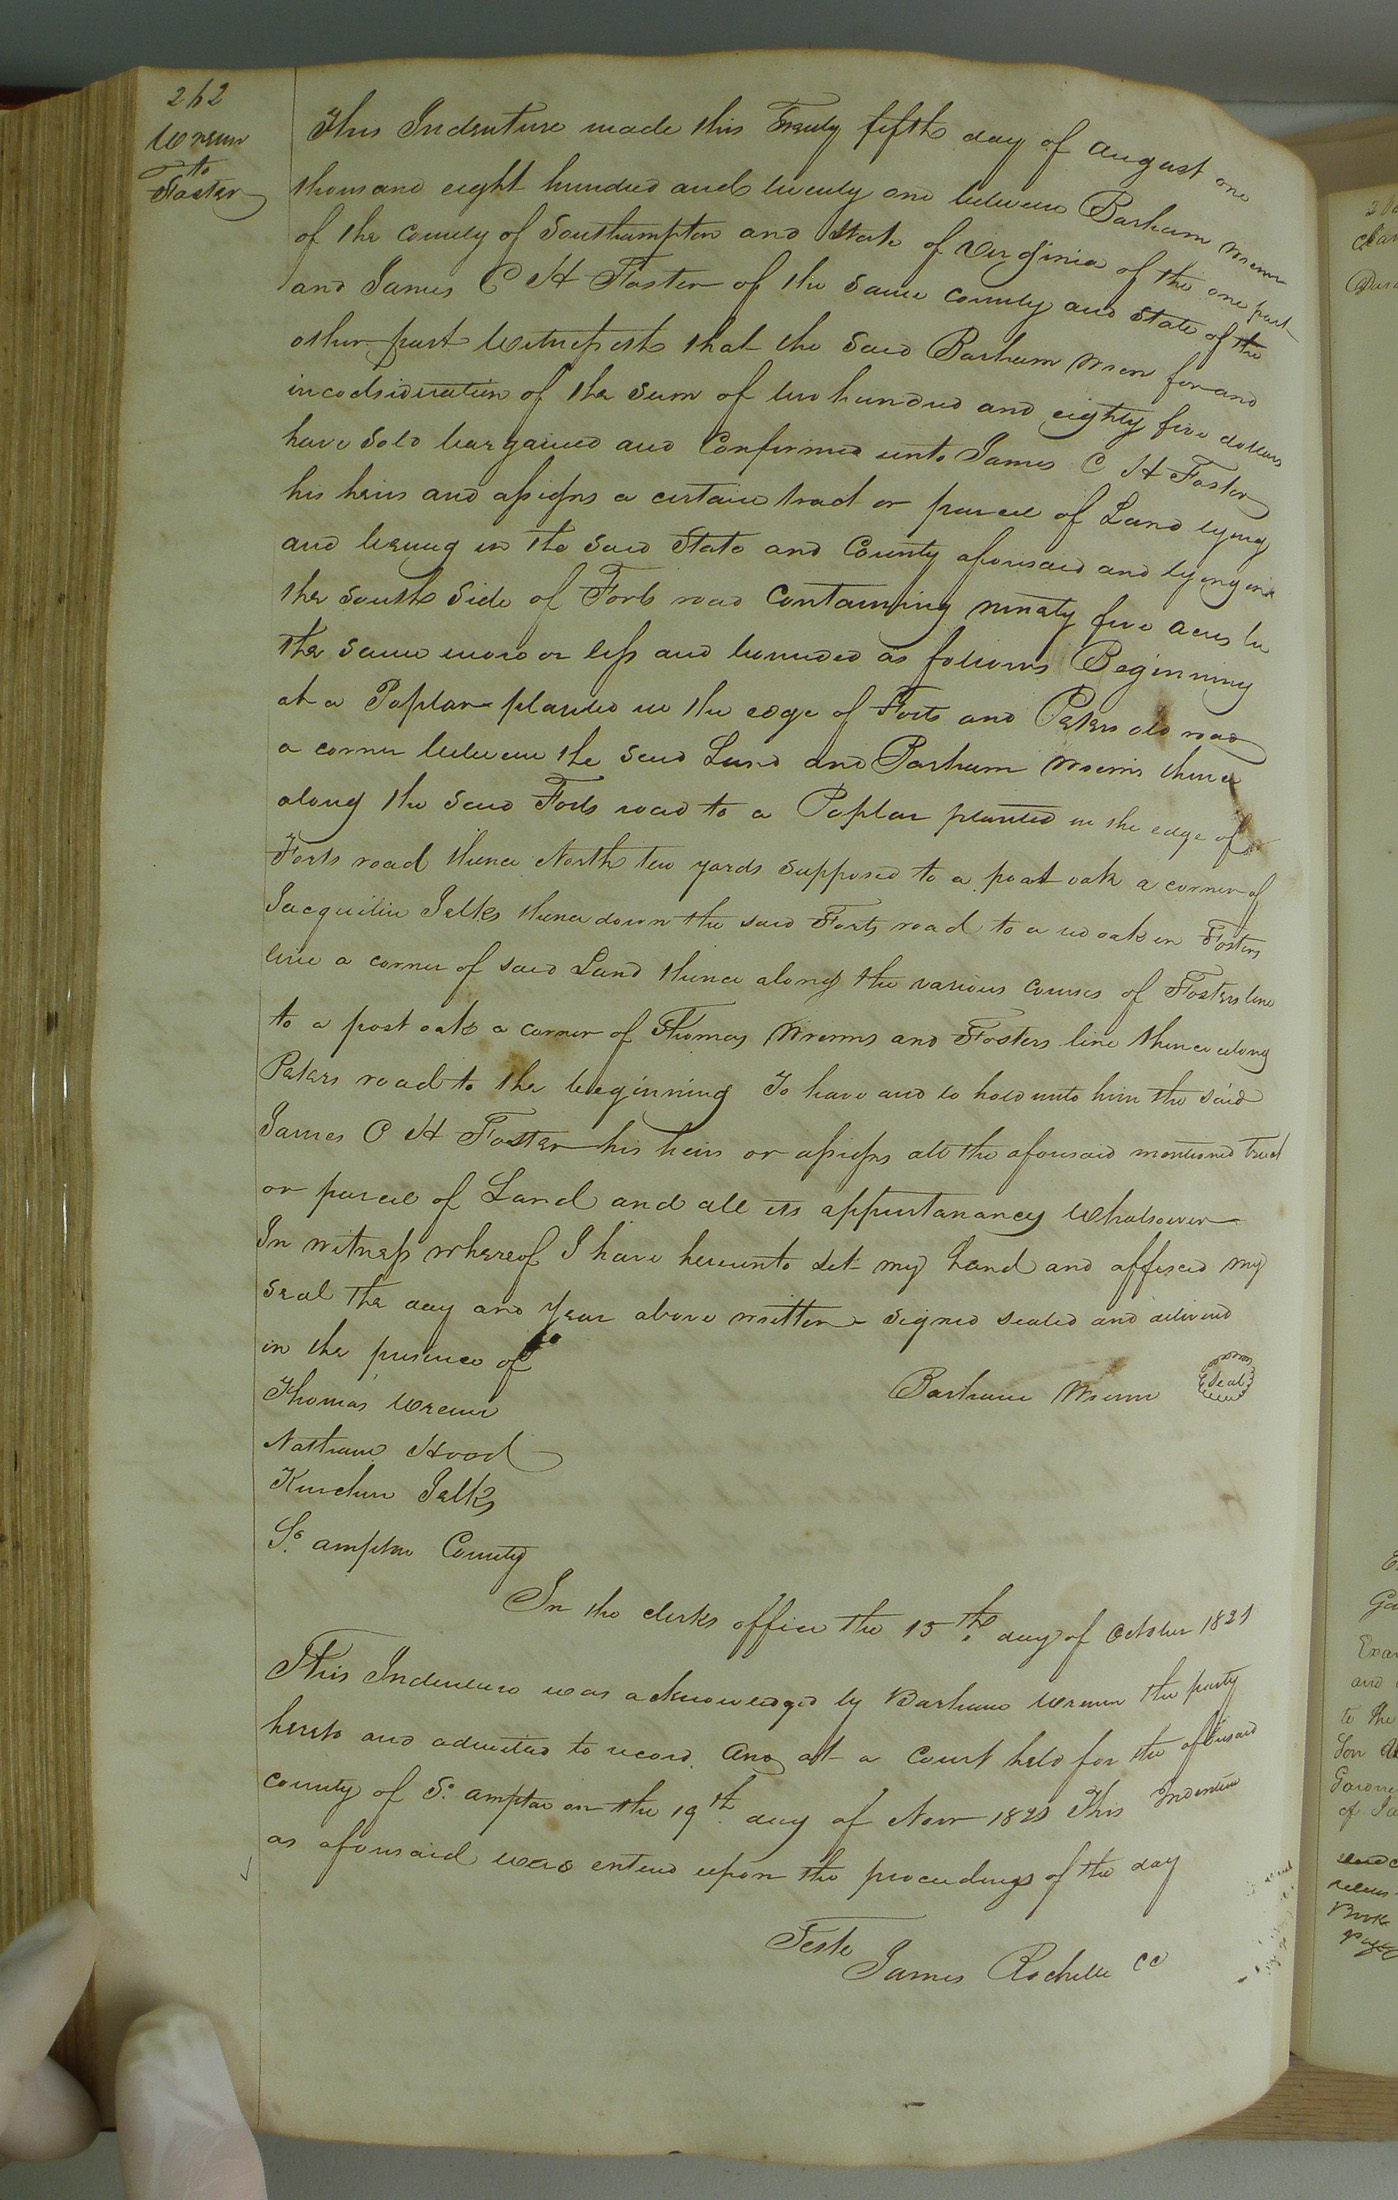 262
Wrenn
to
Foster
This Indenture made this Twenty fifth day of august one
thousand eight hundred and twenty one between Barham Wrenn
of the County of Southampton and State of Virginia of the one part
and James C H Foster of the same county and State of the
other part Witnesseth that the said Barham Wrenn for and
in codsideration of the sum of two hundred and eighty five dollars
have sold bargained and Confirmed unto James C H Foster
his heirs and assigns a certain tract or parcel of Land lying
and being in the said State and County aforesaid and lying on
the south side of Forts road Containing ninety five acres be
the same more or less and bounded as follows Beginning
at a Poplar planted in the edge of Forts and Peters old road
a corner between the said Land and Barham Wrenns thence
along the said Forts road to a Poplar planted in the edge of
Forts road thence North two yards supposed to a post oak a corner of
Jacquilin Jelks thence down the said Forts road to a red oak on Fosters
line a corner of said Land thence along the various courses of Fosters line
to a post oak a corner of Thomas Wrenns and Fosters line thence along
Peters road to the beginning To have and to hold unto him the said
James C H Foster his heirs or assigns all the aforesaid mentioned tract
or parcel of Land and all its appurtanancy Whatsoever
In witness whereof I have hereunto set my hand and affixed my
seal the day and year above written signed sealed and delivered
in the presence of
Barham Wrenn Seal
Thomas Wrenn
Nathan Hood
Kinchen Jelks
So. ampton County
In the clerks office the 15th day of October 1821
This Indenture was acknowledged by Barham Wrenn the party
hereto and admitted to record. And at a Court held for the aforesaid
county of So. ampton on the 19th day of Novr 1821 This Indenture
as aforesaid was entered upon the proceedings of the day
Teste
James Rochelle CC